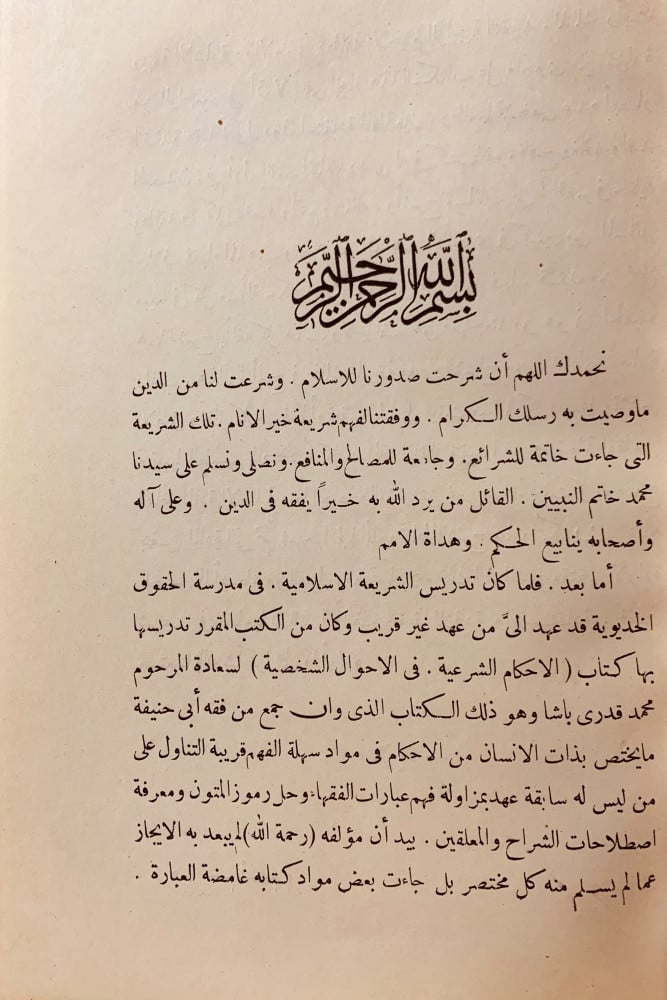 بسم الله الرحمن الرحيم
نحمدك اللهم أن شرحت صدورنا للاسلام . وشرعت لنا من الدين
ماوصيت به رسلك الكرام . ووفقتنا لفهم شريعة خير الانام . تلك الشريعة
التى جاءت خاتمة للشرائع . وجامعة للمصالح والمنافع . ونصلى ونسلم على سيدنا
محمد خاتم النبيين . القائل من يرد الله به خيراً يفقه فى الدين . وعلى آله
وأصحابه ينابيع الحكم . وهداة الامم
أما بعد . فلما كان تدريس الشريعة الاسلامية . فى مدرسة الحقوق
الخديوية قد عهد الىَّ من عهد غير قريب وكان من الكتب المقرر تدريسها
بها كتاب ( الاحكام الشرعية . فى الاحوال الشخصية ) لسعادة المرحوم
محمد قدرى باشا وهو ذلك الكتاب الذى وان جمع من فقه أبى حنيفة
مايختص بذات الانسان من الاحكام فى مواد سهلة الفهم قريبة التناول على
من ليس له سابقة عهد بمزاولة فهم عبارات الفقهاء وحل رموز المتون ومعرفة
اصطلاحات الشراح والمعلقين . بيد أن مؤلفه (رحمة الله) لم يبعد به الايجاز
عما لم يسلم منه كل مختصر بل جاءت بعض مواد كتابه غامضة العبارة .